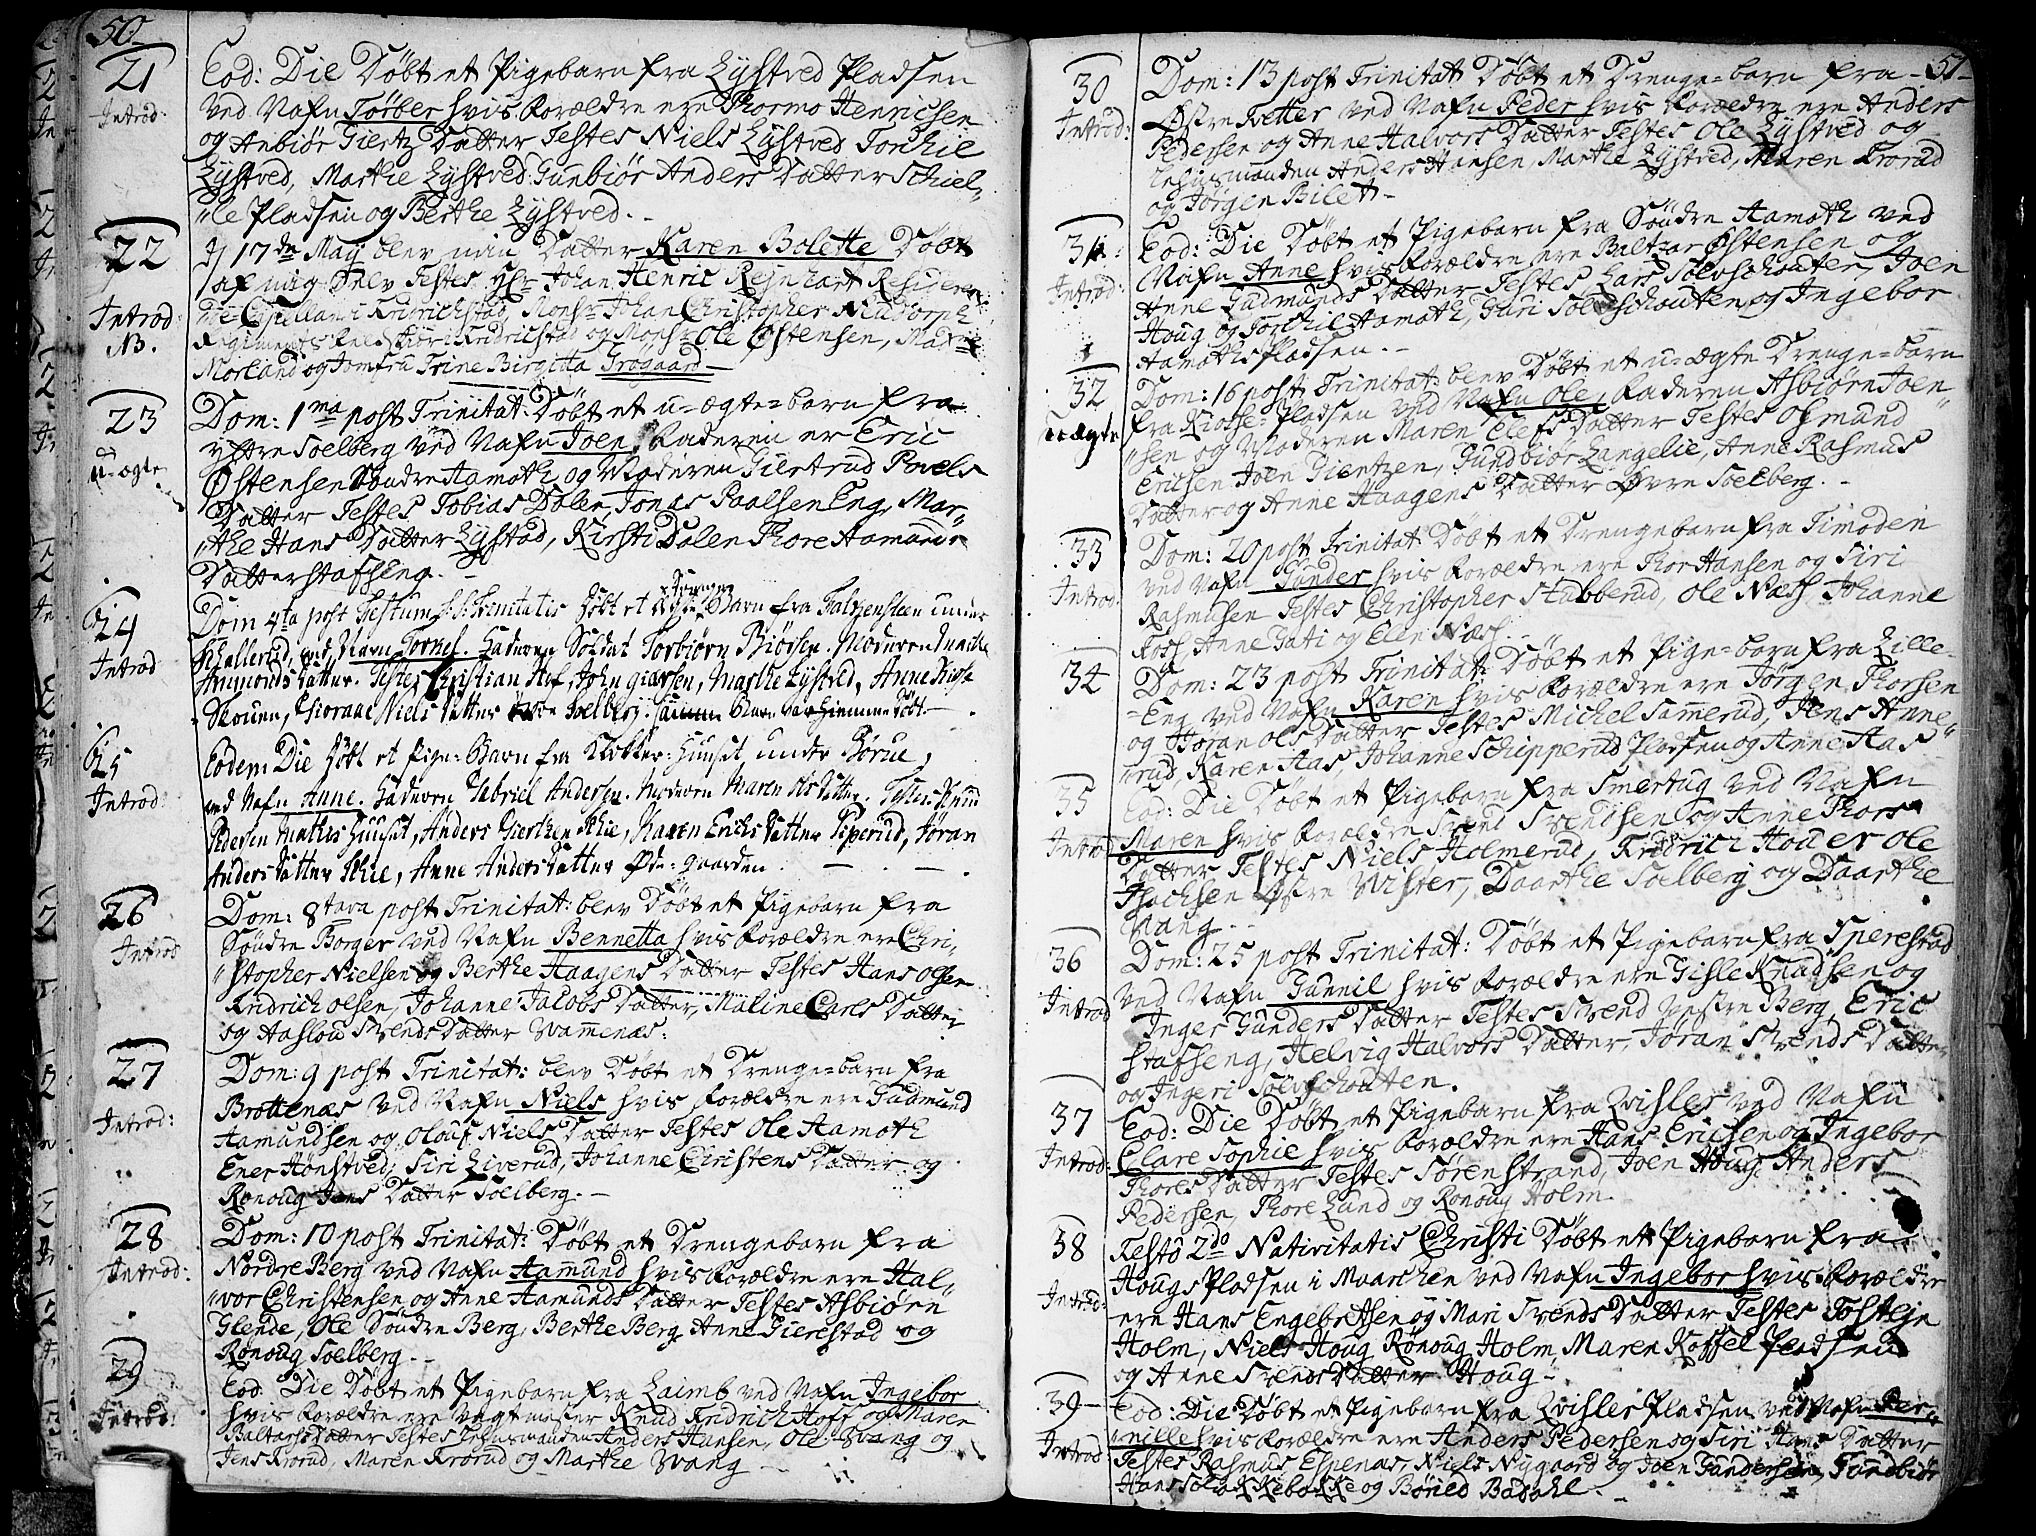 50
21
Introd:
Eod: Die Døbt et Pigebarn fra Lystved Pladsen
ved Nafn Torber hvis Forældre ere Thormo Henricsen
og Anbiør Giertz Datter Testes Niels Lystved Torchie
Lystved, Marthe Lystved Gunbiør Anders Datter Schiel-
"le Pladsen og Berthe Lystved. -
22
Introd:
NB.
17de Maÿ blev min Datter Karen Bolette Døbt
af mig Selv Testes Hr Johan Henric Rejnhart Residere-
de Capellan i Fridrichstad, Monsr Johan Christopher
Regiments i Fridrichstad og Monsr Ole Østensen, Mad
Morland og Jomfru Trine Birgitta Grøgaard -
23
u-ægte
Dom: 1ma post Trinitat: Døbt et u-ægte-barn fra
ÿstre Soelberg ved Nafn Joen, Faderen er Eric
Østensen Søndre Aamoth og Moderen Giertrud Povels
Datter Testes Tobias Dalen, Jonas Paalsen Eng, Mar-
"the Hans Datter Lystad, Kirsti Dalen Thore Aamunds
Datter Stafseng. -
24
Introd
Dom 4ta post Festum S:S: Trinitatis Døbt et Drenge Barn fra Falchensteen under
Schallerud, ved Nafn Tornes. Faderen Soldat Torbiørn Biørsen. Moderen
Ammonds Datter. Testes Christian Huf, John giersen, Marthe Lystved, Anne
Skouen, Niels Datter Soelberg. Barn var hiemme døbt -
25
Introd:
Eodem Die Døbt et Pige-Barn fra Klokker-Huuset under Børue,
ved Nafn Anne. Faderen Gabriel Andersen. Moderen Maren Ols Datter. Testes Knud
Pedersen Mathis Huuset, Anders Gierthen Schie, Karen Erichs Datter Piperud, Jøran
Anders Datter Schie, Anne Anders Datter Øde-gaarden. -
26
Introd
Dom: 8tava post Trinitat: blev Døbt et Pigebarn fra
Søndre Borger ved Nafn Bennetta hvis Forældre ere Chri-
"stopher Nielsen og Berthe Haagens Datter Testes Hans Olsen
Fridrich olsen, Johanne Jacobs Datter, Maline Carls Datter
og Aaslou Svends Datter Wammenæs.
27
Introd:
Dom: 9 post Trinitat: blev Døbt et Drenge-barn fra
Brottenæs ved Nafn Niels hvis Forældre ere Gudmund
Aamundsen og Olouf Niels Datter Testes Ole Aamoth
Ener Hønstved, Siri Liverud, Johanne Christens Datter og
Rønoug Jens Datter Soelberg. -
28
Introd:
Dom: 10 post Trinitat: Døbt et Drengebarn fra
Nordre Berg ved Nafn Aamund hvis Forældre ere Hal-
"vor Christensen og Anne Aamunds Datter Testes Asbiørn
Glende, Ole Søndre Berg, Berthe Berg Anne Gierestad og
Rønoug Soelberg. -
29
Introd:
Eod: Die Døbt et Pigebarn fra Laimb ved Nafn Ingebor
hvis Forældre ere Vagtmester Knud Fridrich Hoff og Maren
Baltzers Datter Testes Lensmanden Anders Hansen, Ole Wang og
Jens Krorud, Maren Krorud og Marthe Wang
51
30
Introd:
Dom: 13 post Trinitat: Døbt et Drenge-barn fra
Østre Tvetter ved Nafn Peder hvis Forældre ere Anders
Pedersen og Anne Halvors Datter Testes Ole Lystved og
Lensmanden Anders Hansen, Marthe Lystved, Maren Krorud
og Jørgen Bilet -
31:
Introd:
Eod: Die Døbt et Pigebarn fra Søndre Aamoth ved
Nafn Anne hvis Forældre ere Baltzar Østensen og
Anne Gudmunds Datter Testes Lars Sølvschouten, Joen
Houg og Torchil Aamoth, Guri Sølvschouten og Ingebor
Aamoths Pladsen. -
32
uægte
Dom: 16 post Trinitat: blev Døbt et u-ægte Drenge-barn
fra Kiolse-Pladsen ved Nafn Ole, Faderen Asbiørn Joen-
"sen og Moderen Maren Elefs Datter Testes Osmund
Ericsen Joen Giertzen, Gundbiør Langelie, Anne Rasmus
Datter og Anne Haagens Datter Øvre Soelberg. -
33
Introd:
Dom: 20 post Trinitat Døbt et Drengebarn fra Timoden
ved Nafn Gunder hvis Forældre ere Thor Hansen og Siri
Rasmusen Testes Christopher Stubberud, Ole Næss Johanne
Foss, Anne Gati og Elen Næss. -
34
Dom: 23 post Trinitat: Døbt et Pige-barn fra Lille-
-Eng ved Nafn Karen hvis Forældre ere Jørgen Thorsen
og Jøran Ols Datter Testes Michel Sammerud, Jens Anne-
"rud, Karen Aas, Johanne Schipperud Pladsen og Anne Aas
35
Introd
Eod: Die Døbt et Pigebarn fra Smertug ved Nafn
Maren hvis Forældre Svend Svendsen og Anne Thors
Datter Testes Niels Holmerud, Fridrici Houer Ole
Isachsen Østre Wister, Daarthe Soelberg og Daarthe
Wang -
36
Introd
Dom: 25 post Trinitat: Døbt et Pigebarn fra Sperestad
ved Nafn Gunnil hvis Forældre ere Gisle Knudsen og
Inger Gunders Datter Testes Svend Vestre Berg, Eric
Stafseng, Helvig Halvors Datter, Jøran Svends Datter
og Ingeri Sølvschouten.
37
Introd:
Eod: Die Døbt et Pigebarn fra Qvisler ved Nafn
Clare Sophie hvis Forældre ere Hans Ericsen og Ingebor
Thores Datter Testes Søren Strand, Joen Houg Anders
Pedersen, Thore Lund og Rønoug Holm.
38
Introd:
Festo 2do Nativitatis Christi Døbt ett Pigebarn fra
Hougs Pladsen i Maarchen ved Nafn Ingebor hvis Forældre
ere Hans Engebretsen og Mari Svends Datter Testes Tostejn
Holm, Niels Houg Rønoug Holm, Maren Koffel Pladsen
og Anne Svends Datter Houg -
39 -
Introd
Eod: Die Døbt et Pigebarn fra Qvisler Pladsen ved Nafn Per-
"nille hvis Forældre ere Anders Pedersen og Siri Hans Datter
Testes Rasmus Espenæs, Niels Nygaard og Joen Gundersen, Gundbiør
Hans Solbakkebakke og Børild Badahl. -